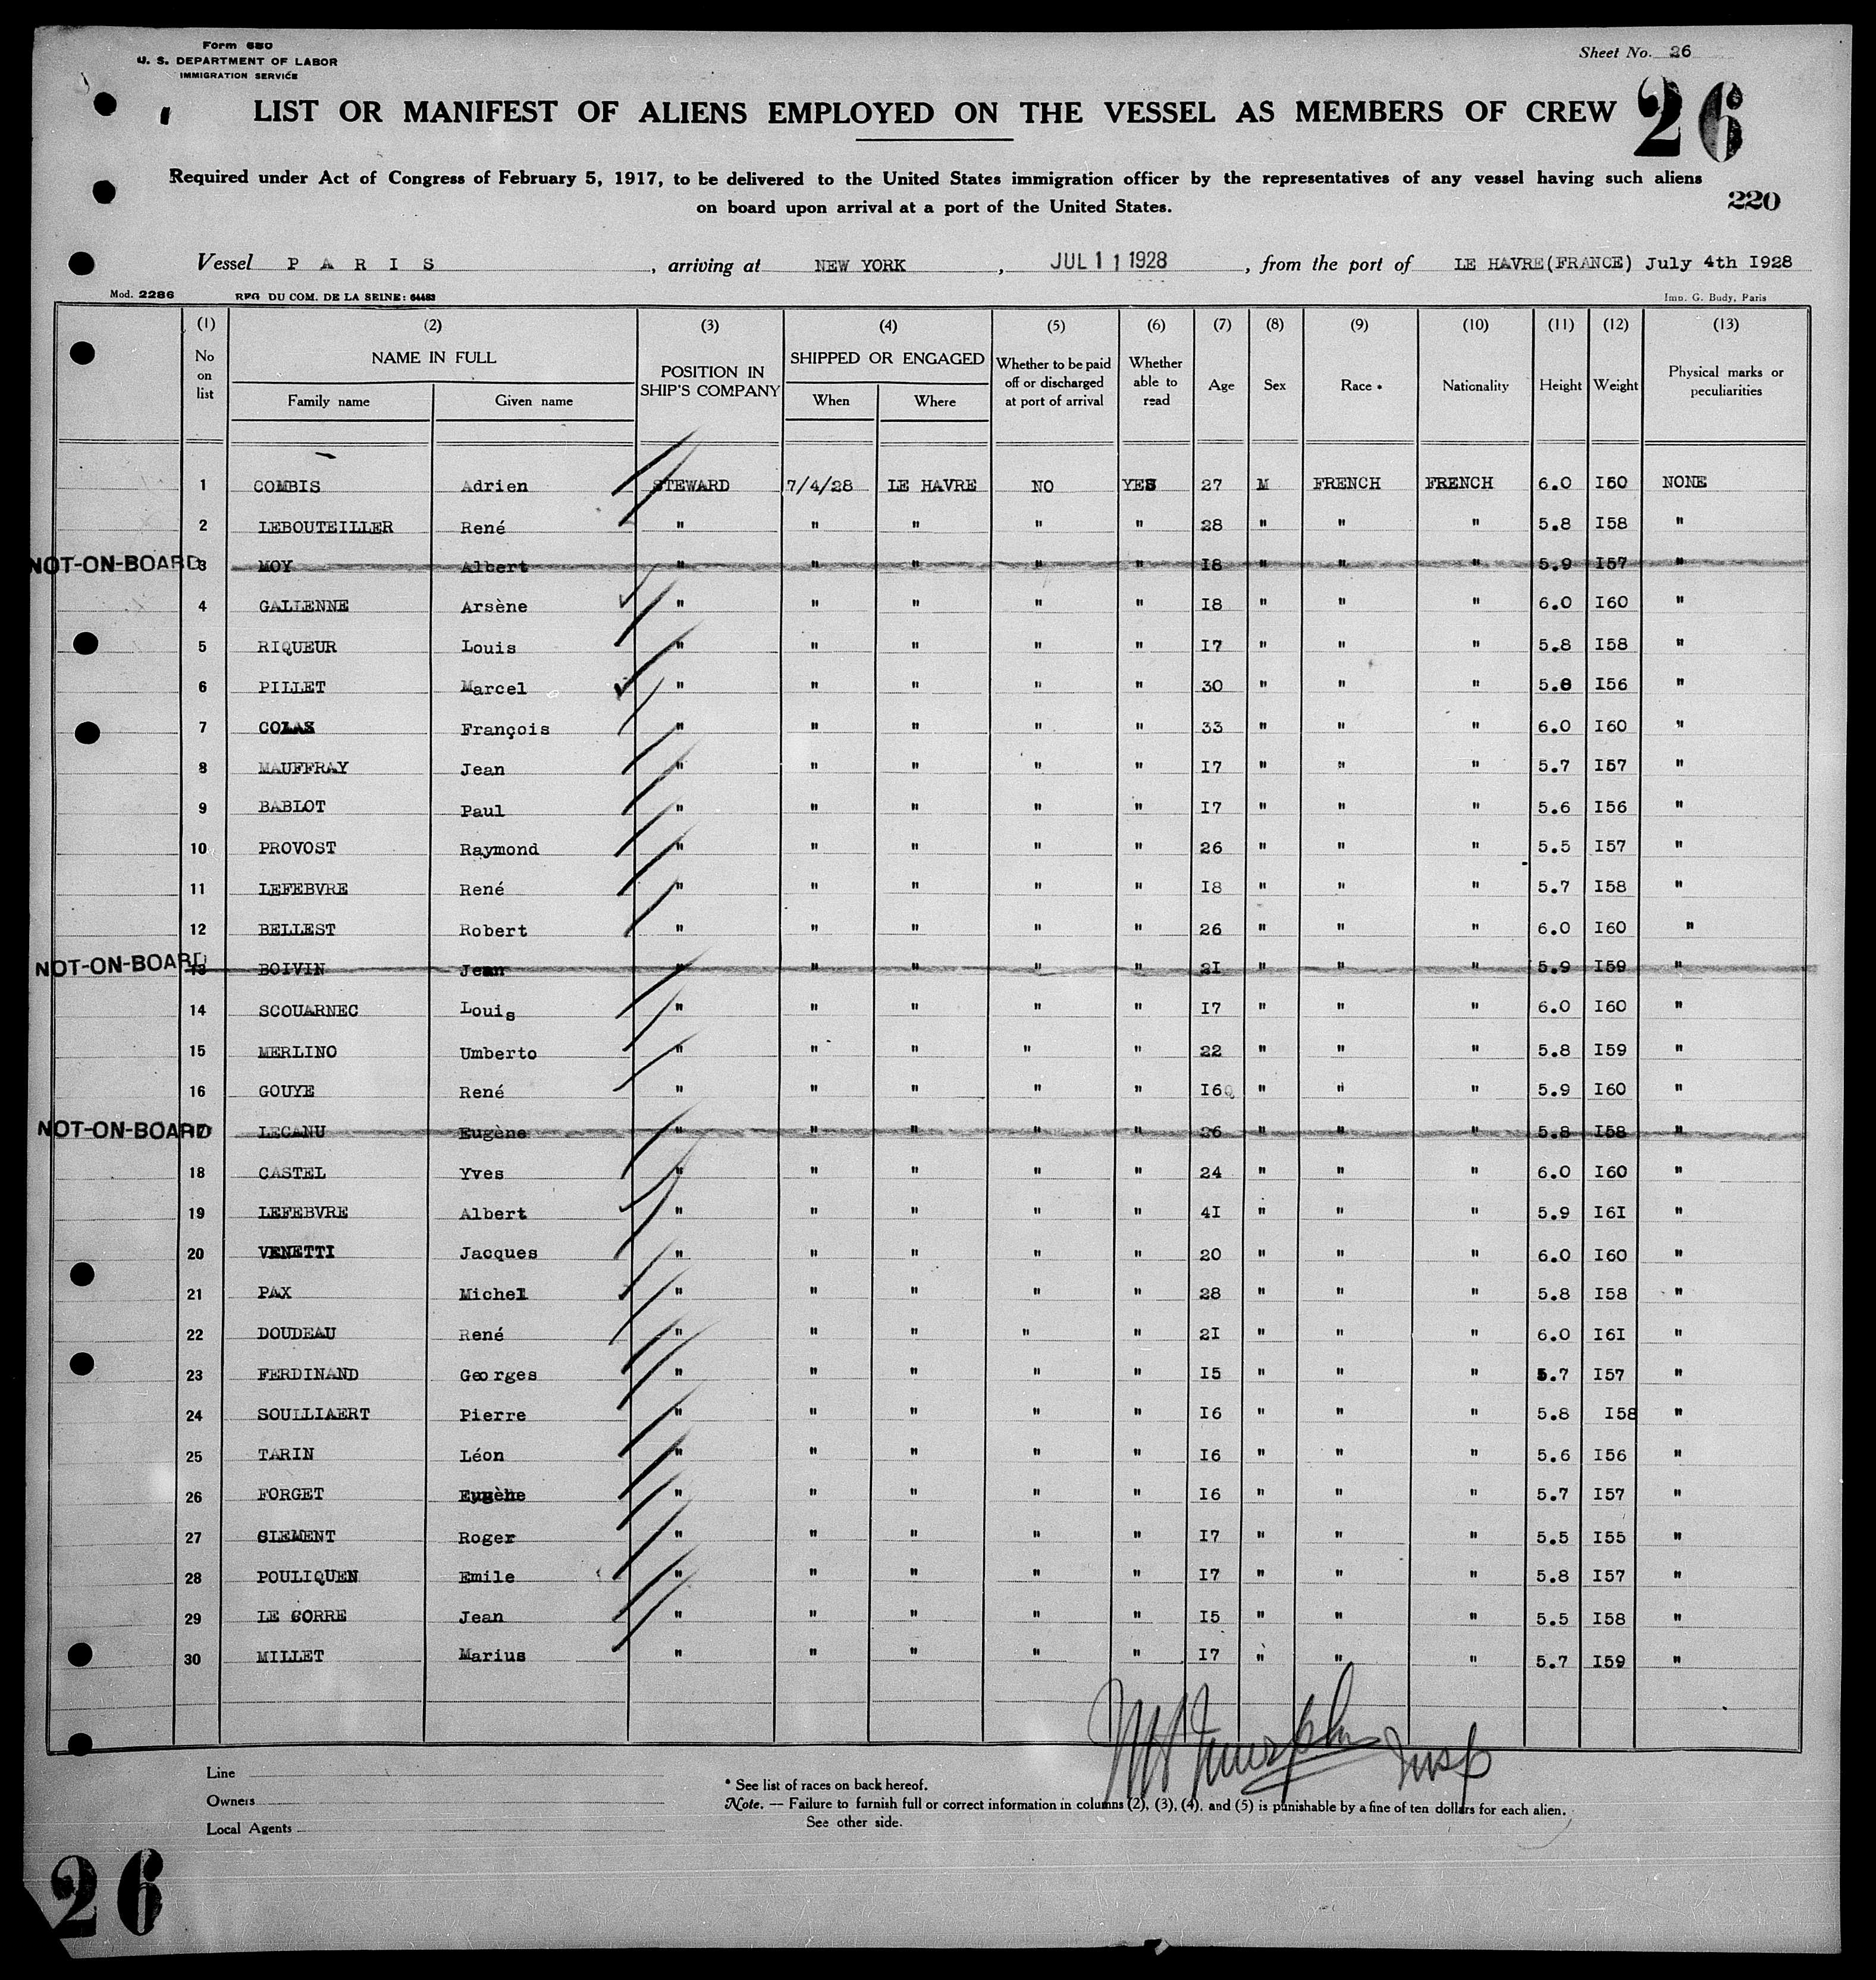 Form 680
U. S. DEPARTMENT OF LABOR
IMMIGRATION SERVICE
Sheet No. 26
LIST OR MANIFEST OF ALIENS EMPLOYED ON THE VESSEL AS MEMBERS OF CREW 26
Required under Act of Congress of February 5, 1917, to be delivered to the United States immigration officer by the representatives of any vessel having such aliens
on board upon arrival at a port of the United States.
220
Vessel P A R I S , arriving at NEW YORK , JUL 11 1928 , from the port of LE HAVRE(FRANCE) July 4th I928
Mod. 2286 REG DU COM. DE LA SEINE: 64483 Imp. G. Budy, Paris
(1) (2) (3) (4) (5) (6) (7) (8) (9) (10) (11) (12) (13)
No on list NAME IN FULL POSITION IN SHIP'S COMPANY SHIPPED OR ENGAGED Whether to be paid off or discharged at port of arrival Whether able to read Age Sex Race * Nationality Height Weight Physical marks or peculiarities
Family name Given name When Where
1 COMBIS Adrien STEWARD 7/4/28 LE HAVRE NO YES 27 M FRENCH FRENCH 6.0 I60 NONE
2 LEBOUTEILLER René " " " " " 28 " " " 5.8 I58 "
NOT-ON-BOARD 3 MOY Albert " " " " " I8 " " " 5.9 I57 "
4 GALLENNE Arsène " " " " " I8 " " " 6.0 I60 "
5 RIQUEUR Louis " " " " " I7 " " " 5.8 I58 "
6 PILLET Marcel " " " " " 30 " " " 5.8 I56 "
7 COLAS François " " " " " 33 " " " 6.0 I60 "
8 MAUFFRAY Jean " " " " " I7 " " " 5.7 I57 "
9 BABLOT Paul " " " " " I7 " " " 5.6 I56 "
10 PROVOST Raymond " " " " " 26 " " " 5.5 I57 "
11 LEFEBVRE René " " " " " I8 " " " 5.7 I58 "
12 BELLEST Robert " " " " " 26 " " " 6.0 I60 "
NOT-ON-BOARD 13 BOIVIN Jean " " " " " 2I " " " 5.9 I59 "
14 SCOUARNEC Louis " " " " " I7 " " " 6.0 I60 "
15 MERLINO Umberto " " " " " 22 " " " 5.8 I59 "
16 GOUYE René " " " " " I6 " " " 5.9 I60 "
NOT-ON-BOARD 17 LECANU Eugène " " " " " 26 " " " 5.8 I58 "
18 CASTEL Yves " " " " " 24 " " " 6.0 I60 "
19 LEFEBVRE Albert " " " " " 4I " " " 5.9 I6I "
20 VENETTI Jacques " " " " " 20 " " " 6.0 I60 "
21 PAX Michel " " " " " 28 " " " 5.8 I58 "
22 DOUDEAU René " " " " " 2I " " " 6.0 I6I "
23 FERDINAND Georges " " " " " I5 " " " 5.7 I57 "
24 SOULLIAERT Pierre " " " " " I6 " " " 5.8 I58 "
25 TARIN Léon " " " " " I6 " " " 5.6 I56 "
26 FORGET Eugène " " " " " I6 " " " 5.7 I57 "
27 CLEMENT Roger " " " " " I7 " " " 5.5 I55 "
28 POULIQUEN Emile " " " " " I7 " " " 5.8 I57 "
29 LE CORRE Jean " " " " " I5 " " " 5.5 I58 "
30 MILLET Marius " " " " " I7 " " " 5.7 I59 "
Murphy Insp
Line
Owners
Local Agents
* See list of races on back hereof.
Note. — Failure to furnish full or correct information in columns (2), (3), (4), and (5) is punishable by a fine of ten dollars for each alien.
See other side.
26